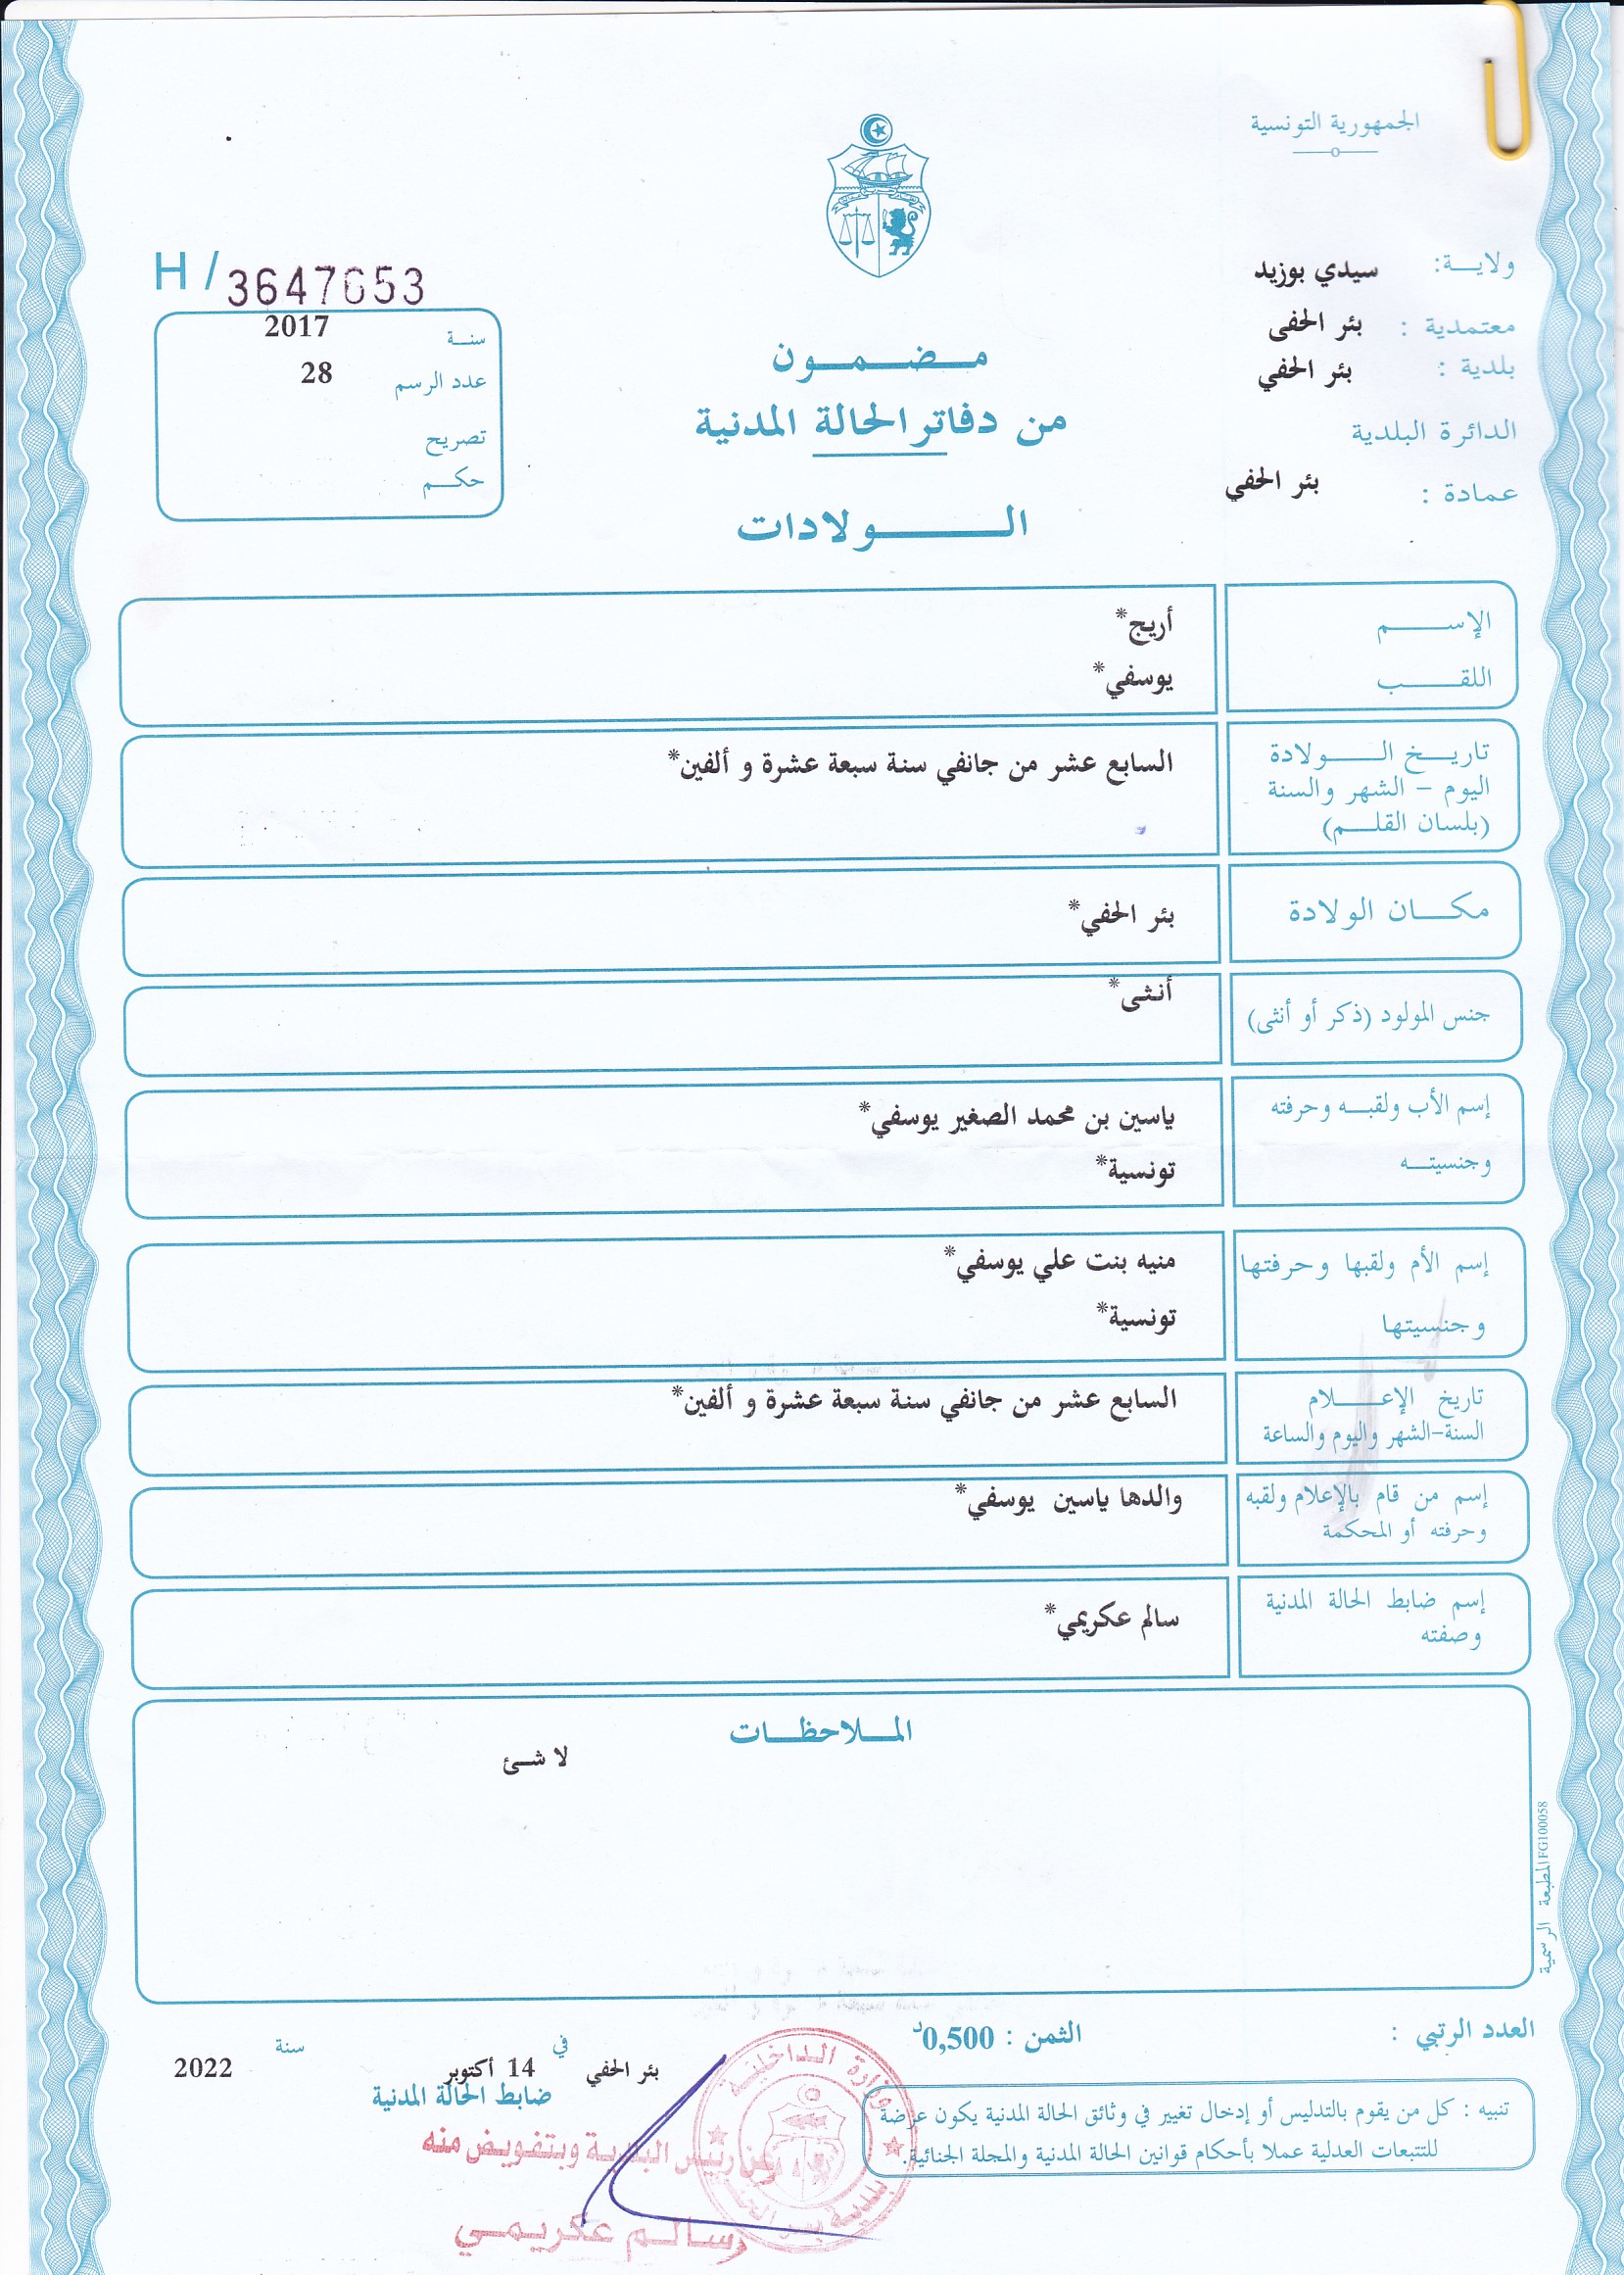 الجمهورية التونسية
ولايـــة: سيدي بوزيد
معتمدية : بئر الحفى
بلدية : بئر الحفي
الدائرة البلدية
عمادة : بئر الحفي
H / 3647653
سنــة 2017
عدد الرسم 28
تصريح
حكــم
مـضـمـون
من دفاتر الحالة المدنية
الــولادات
الإســـم أريج*
اللقـــب يوسفي*
تاريــخ الـــولادة
اليوم - الشهر والسنة
(بلسان القلــم)
السابع عشر من جانفي سنة سبعة عشرة و ألفين*
مكــان الولادة بئر الحفي*
جنس المولود (ذكر أو أنثى) أنثى*
إسم الأب ولقبــه وحرفته
وجنسيتــه
ياسين بن محمد الصغير يوسفي*
تونسية*
إسم الأم ولقبها وحرفتها
وجنسيتها
منيه بنت علي يوسفي*
تونسية*
تاريخ الإعـــلام
السنة-الشهر واليوم والساعة
السابع عشر من جانفي سنة سبعة عشرة و ألفين*
إسم من قام بالإعلام ولقبه
وحرفته أو المحكمة
والدها ياسين يوسفي*
إسم ضابط الحالة المدنية
وصفته
سالم عكريمي*
المــلاحظــات
لا شــئ
المطبعة الرسمية FG100058
العدد الرتبي :
الثمن : 0,500د
بئر الحفي في 14 أكتوبر سنة 2022
ضابط الحالة المدنية
تنبيه : كل من يقوم بالتدليس أو إدخال تغيير في وثائق الحالة المدنية يكون عرضة
للتتبعات العدلية عملا بأحكام قوانين الحالة المدنية والمجلة الجنائية.
عن رئيس البلدية وبتفويض منه
سالم عكريمي
وزارة الداخلية
بلدية بئر الحفي